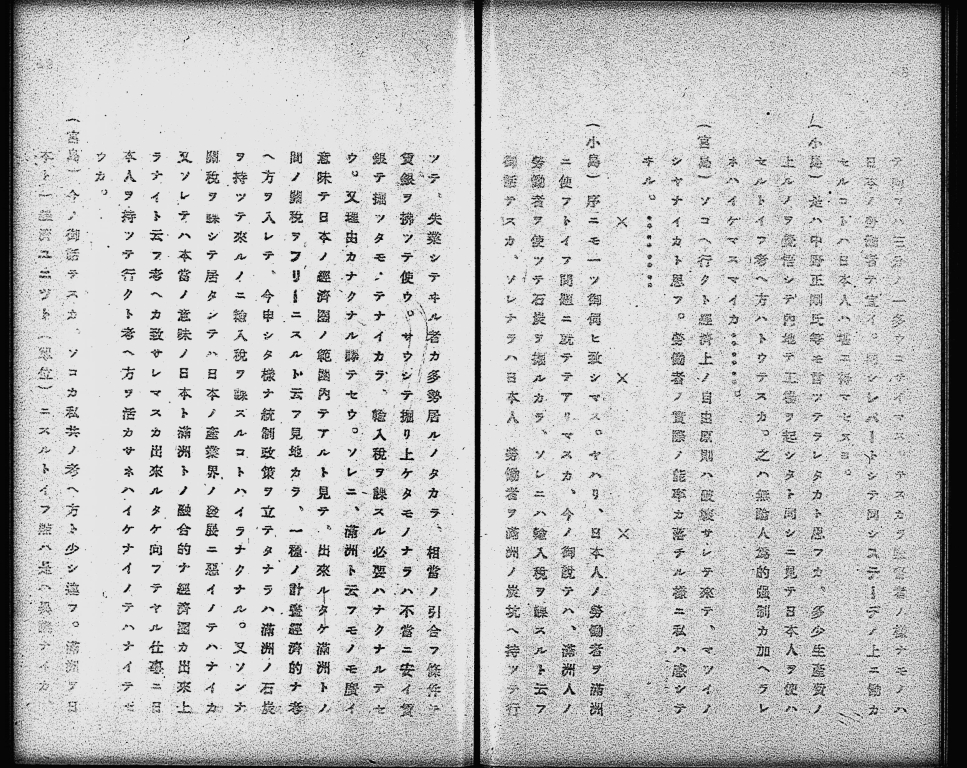 日本ノ勞働者テ宜イ。
セルコトハ日本人ハ
(小島) 是ハ中野正剛氏等モ言ツテヲレタカト思フカ、多少生產費ノ
上ルノヲ覺悟シテ內地テ工場ヲ起シタト同シニ見テ日本人ヲ使ハ
セルトイフ考ヘ方ハトウテスカ。之ハ無論人爲的强制カ加ヘラレ
ネハイケマスマイカ……
(宮島) ソコヘ行クト經濟上ノ自由原則ハ破壞サレテ來テ、マツイノ
シヤナイカト思フ。勞働者ノ實際ノ能率カ落チル樣ニ私ハ感シテ
ヰル。………
× × ×
(小島) 序ニモ一ツ御伺ヒ致シマス。ヤハリ、日本人ノ勞働者ヲ滿洲
ニ使フトイフ問題ニ就テテアリマスカ、今ノ御說テハ、滿洲人ノ
勞働者ヲ使ツテ石炭ヲ掘ルカラ、ソレニハ輸入稅ヲ課スルト云フ
御話テスカ、ソレナラハ日本人ノ勞働者ヲ滿洲ノ炭坑ヘ持ツテ行
ツテ、失業シテヰル者カ多勢居ルノタカラ、相當ノ引合フ條件テ
賃銀ヲ拂ツテ使ウ。サウシテ掘リ上ケタモノナラハ不當ニ安イ賃
銀テ掘ツタモノテナイカラ、輸入稅ヲ課スル必要ハナクナルテセ
ウ。又理由カナクナル譯テセウ。ソレニ、滿洲ト云フモノモ廣イ
意味テ日本ノ經濟圈ノ範圍內テアルト見テ、出來ルタケ滿洲トノ
間ノ關稅ヲフリーニスルト云フ見地カラ、一種ノ計畫經濟的ナ考
ヘ方ヲ入レテ、今申シタ樣ナ統制政策ヲ立テタナラハ滿洲ノ石炭
ヲ持ツテ來ルノニ輸入稅ヲ課スルコトハイラナクナル。又ソンナ
關稅ヲ課シテ居タンテハ日本ノ產業界ノ發展ニ惡イノテハナイカ
又ソレテハ本當ノ意味ノ日本ト滿洲トノ融合的ナ經濟圈カ出來上
ラナイト云フ考ヘカ致サレマスカ出來ルタケ向フテヤル仕事ニ日
本人ヲ持ツテ行クト考ヘ方ヲ活カサネハイケナイノテハナイテセ
ウカ。
(宮島) 今ノ御話テスカ、ソコカ私共ノ考ヘ方ト少シ違フ。滿洲ヲ日
本ト一經濟ユニツト(單位)ニスルトイフ